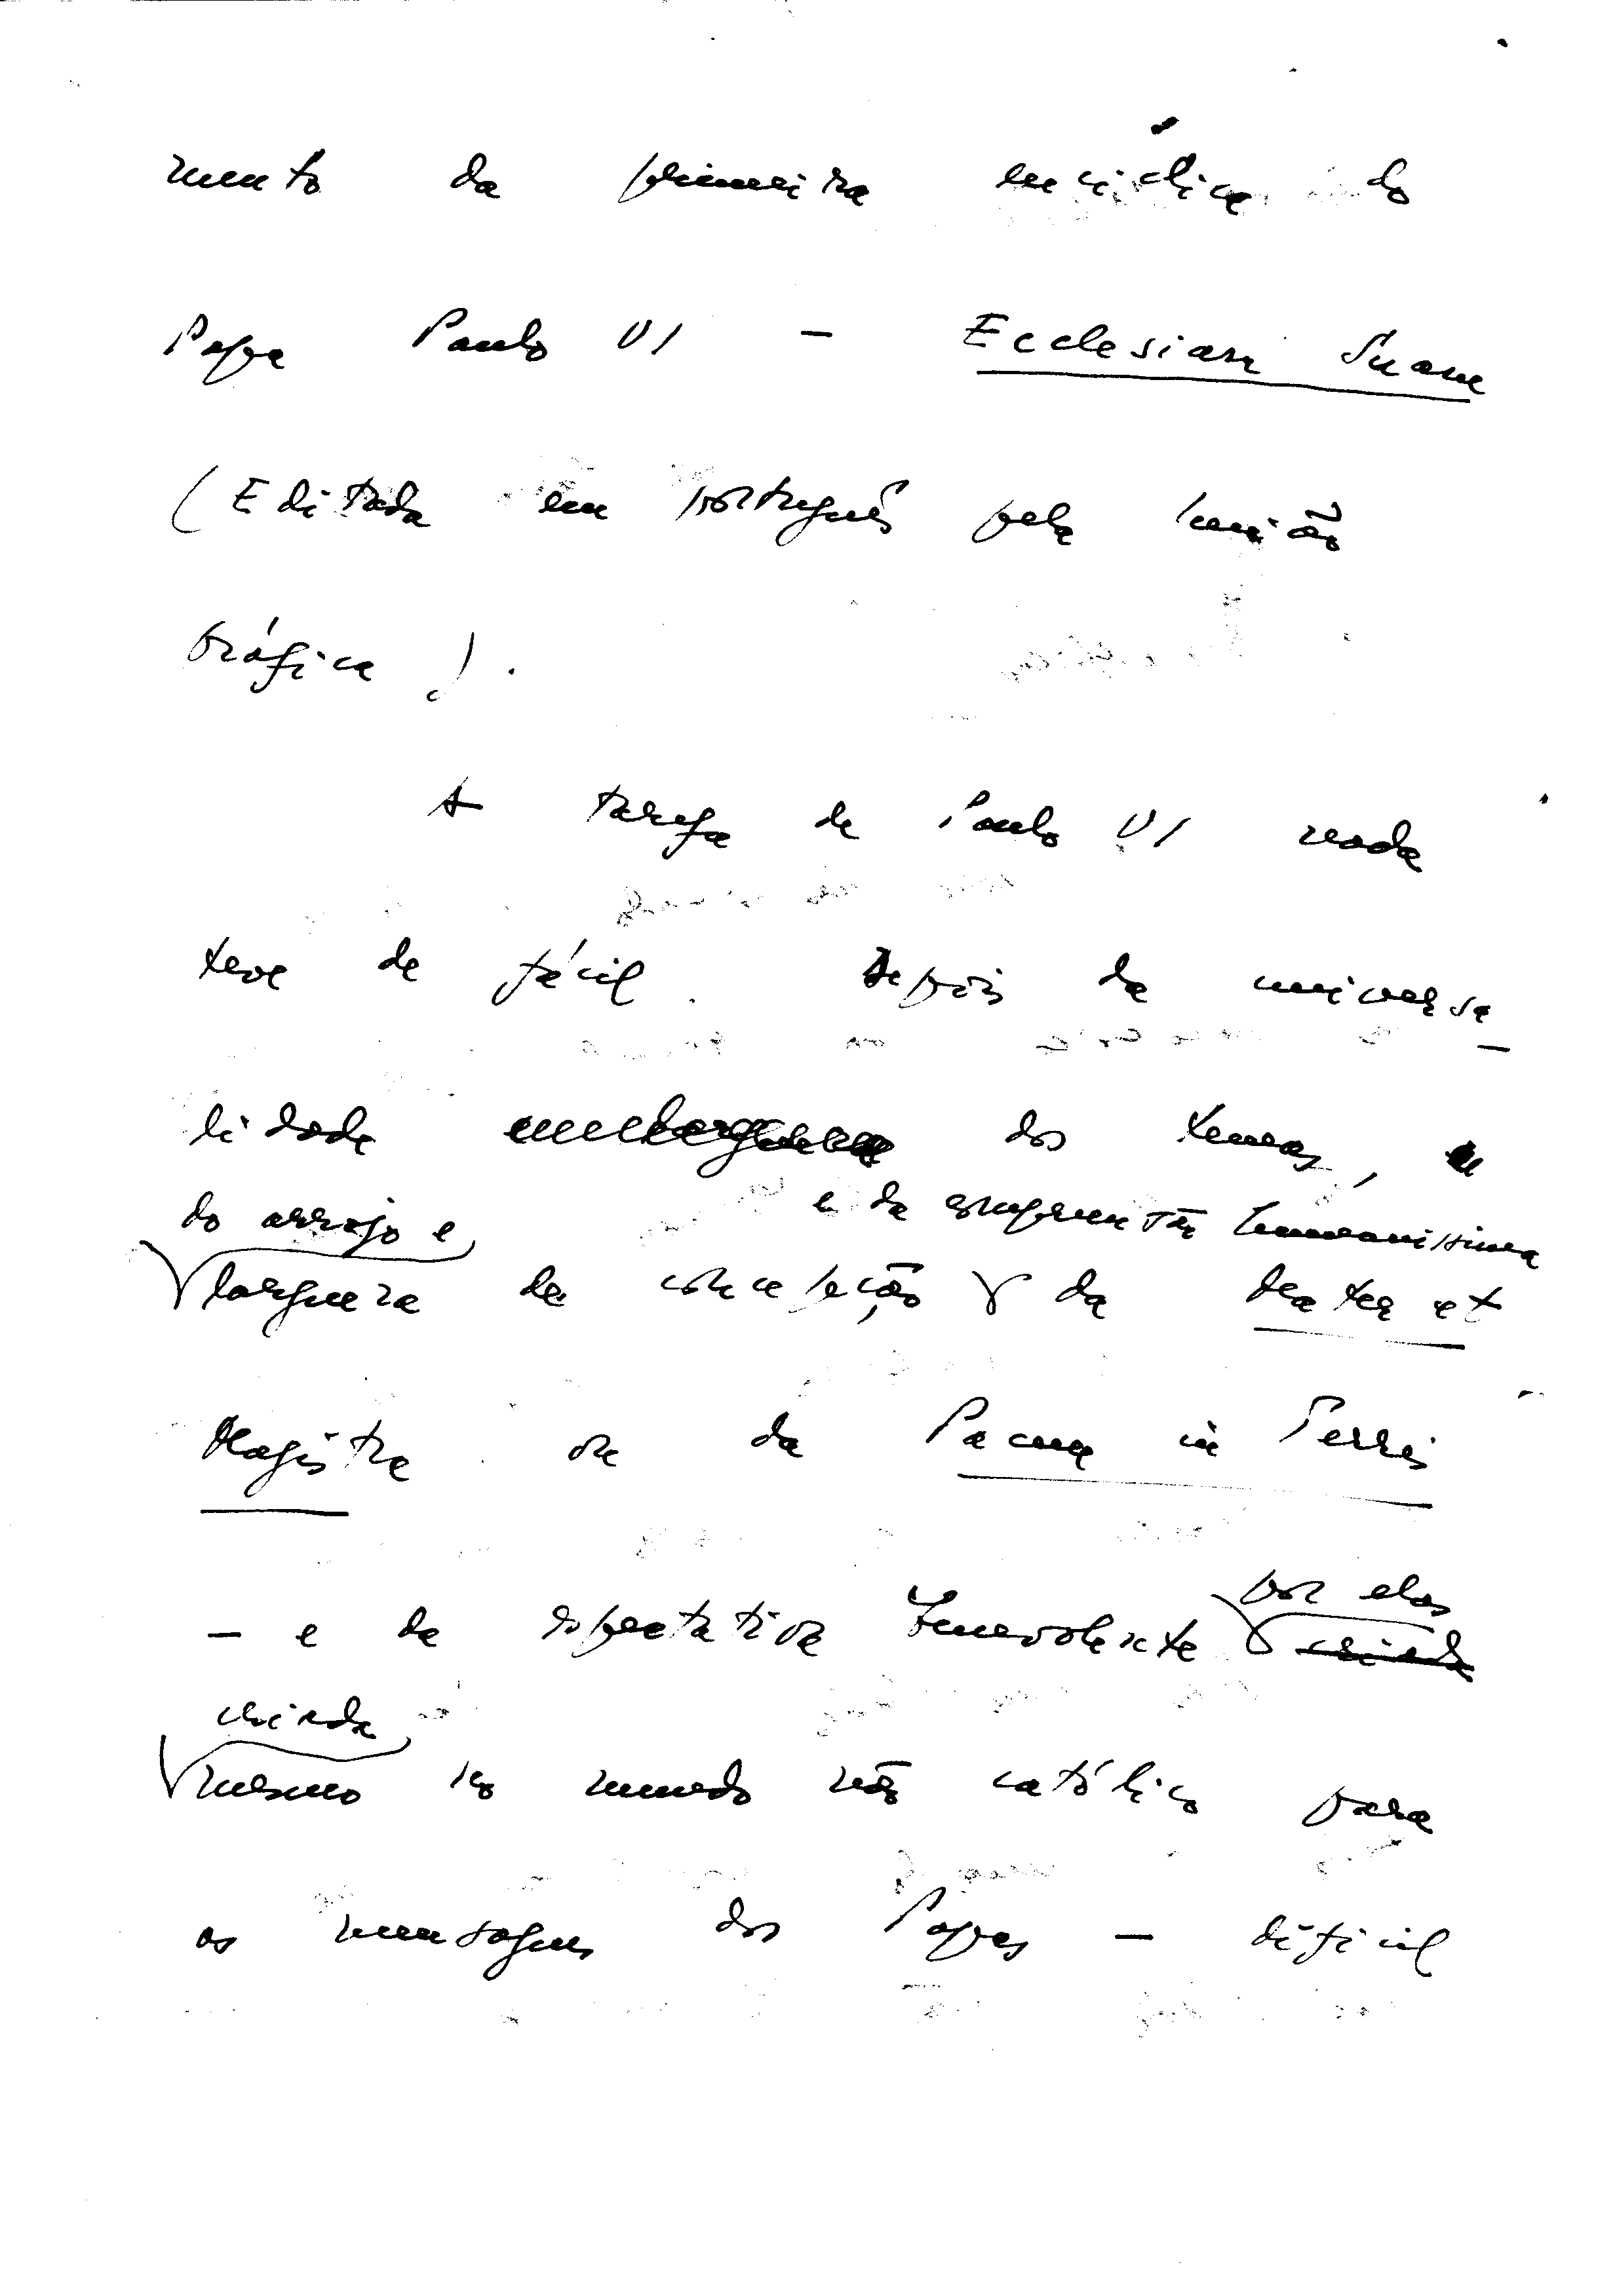 mento da primeira encíclica do
Papa Paulo VI — Ecclesiam Suam
(Editada em português pela União
Gráfica).
A tarefa de Paulo VI nada
teve de fácil. Depois da universa-
lidade dos temas,
do arrojo e e da compreensão humaníssima
largueza de concepção da Mater et
Magistra ou da Pacem in Terris
— e da espectativa benevolente por elas
criada
mesmo no mundo não católico para
as mensagens dos Papas — difícil